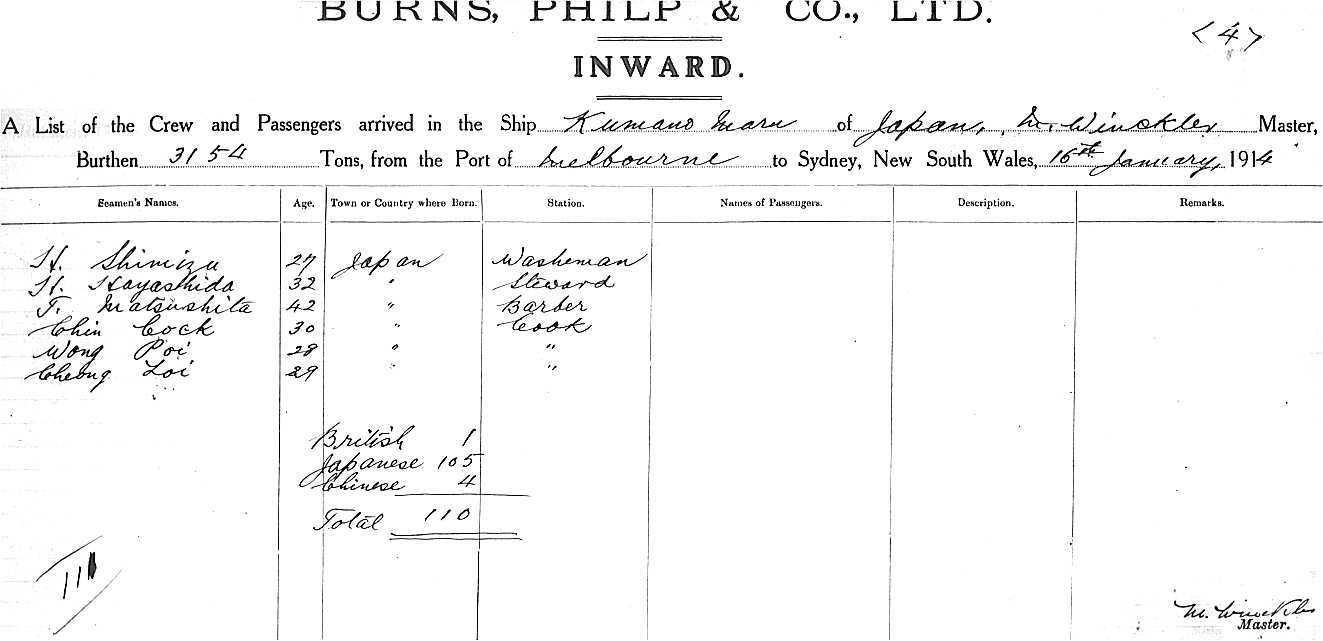 BURNS, PHILP & CO., LTD.
<4>
INWARD.
A List of the Crew and Passengers arrived in the Ship Kumano Maru of Japan, M. Winckler Master,
Burthen 3154 Tons, from the Port of Melbourne to Sydney, New South Wales, 16th January, 1914
Seamen's Names. Age. Town or Country where Born. Station. Names of Passengers. Description. Remarks.
H. Shimizu 27 Japan Washeman
H. Hayashida 32 " Steward
T. Matsushita 42 " Barber
Chin Cock 30 " Cook
Wong Poi 28 " "
Cheong Loi 29 " "
British 1
Japanese 105
Chinese 4
Total 110
111
M. Winckler
Master.